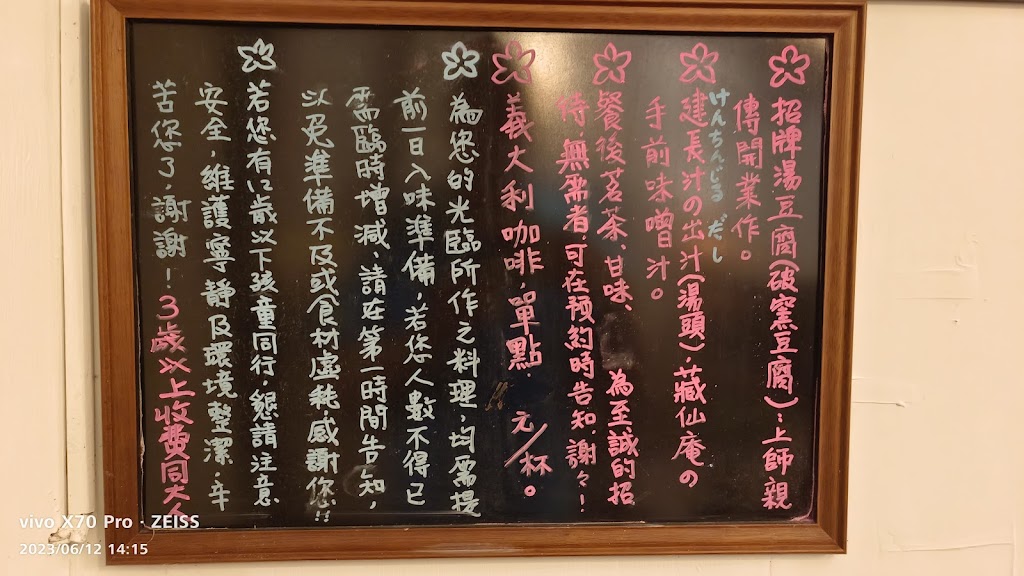 招牌湯豆腐(破窯豆腐):上師親
傳開業作。
けんちんじる だし
建長汁の出汁(湯頭)・藏仙庵の
手前味噌汁。
餐後茗茶、甘味、為至誠的招
待,無需者,可在預約時告知謝々!
義大利咖啡,單點 元/杯。
為您的光臨所作之料理,均需提
前一日入味準備,若您人數不得已
需臨時增減,請在第一時間告知,
以免準備不及或食材虛耗,感謝您!!
若您有12歲以下孩童同行,懇請注意
安全,維護寧靜及環境整潔,辛
苦您了,謝謝!3歲以上收費同大人
vivo X70 Pro · ZEISS
2023/06/12 14:15